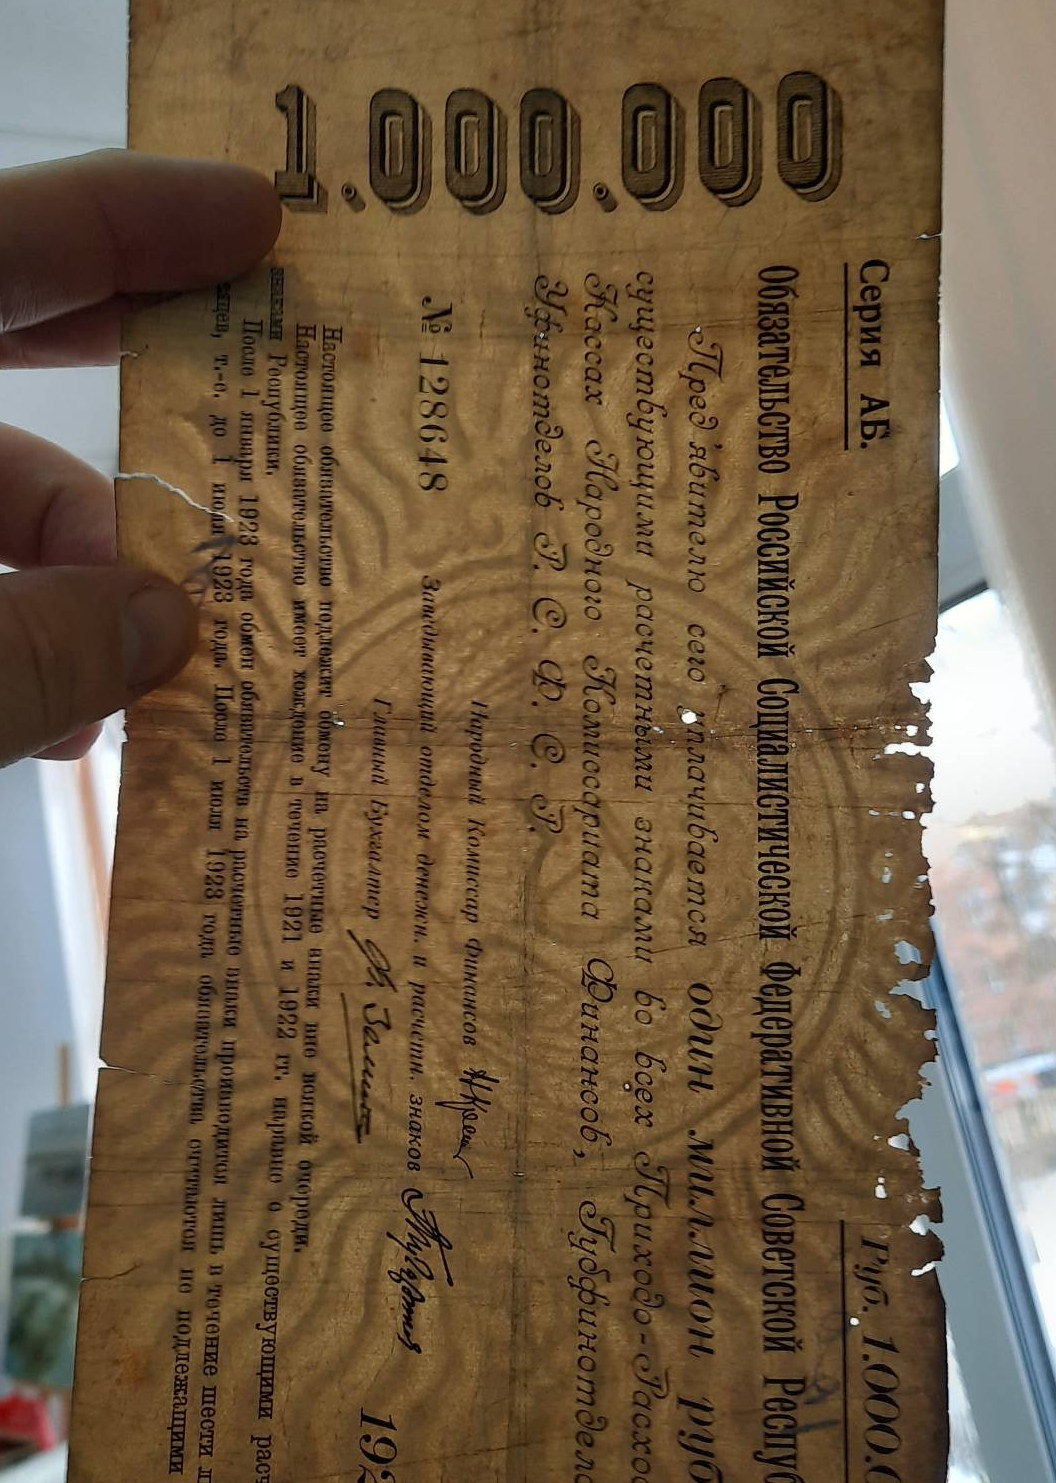 1.000.000
Серия АБ.
Руб. 1.000.
Обязательство Российской Социалистической Федеративной Советской Респу
Пред'явителю сего уплачивается один миллион руб
существующими расчетными знаками во всех Приходо-Расхо
Кассах Народного Комиссариата Финансов, Губфинотдела
Уфинотделов Р. С. Ф. С. Р.
Народный Комиссар Финансов
№ 128648
Заведывающий отделом денежн. и расчетн. знаков
Главный Бухгалтер
192
Настоящее обязательство подлежит обмену на расчетные знаки вне всякой очереди.
Настоящее обязательство имеет хождение в течение 1921 и 1922 гг. наравне с существующими рас
знаками Республики.
После 1 января 1923 года обмен обязательств на расчетные знаки производится лишь в течение шести
т.-е. до 1 июля 1923 года. После 1 июля 1923 года обязательства считаются не подлежащими